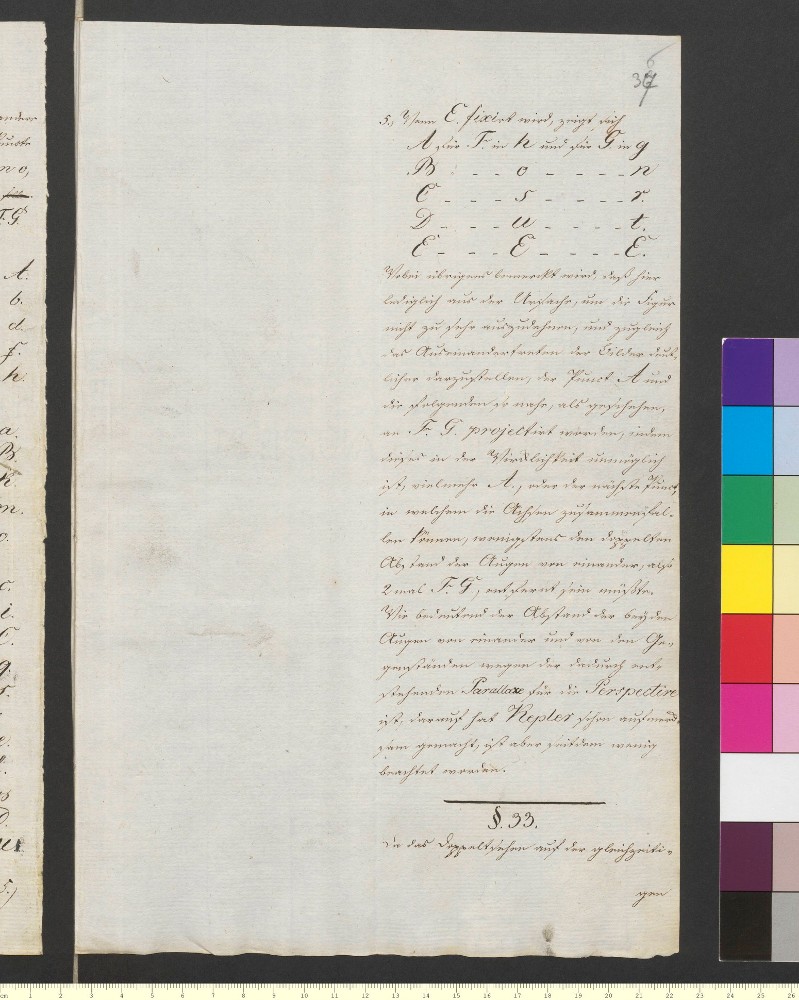 37
5., Wenn E. fixirt wird, zeigt sich
A für F. in h und für G. in g
B - - - o - - - - - n
C - - - s - - - - - r.
D - - - u - - - - - t.
E - - - E - - - - - E.
Wobei übrigens bemerkt wird, daß hier
lediglich aus der Ursache, um die Figur
nicht zu sehr auszudehnen, und zugleich
das Auseinandertreten der Bilder deut-
licher darzustellen, der Punct A und
die folgenden so nahe, als geschehen,
an F. G. projectirt worden, indem
dieses in der Wirklichkeit unmöglich
ist, vielmehr A., oder der nächste Punct,
in welchem die Achsen zusammenfal-
len können, wenigstens den doppelten
Abstand der Augen von einander, also
2 mal F. G., entfernt sein müßte.
Wie bedeutend der Abstand der beyden
Augen von einander und von den Ge-
genständen wegen der dadurch ent-
stehenden Parallaxe für die Perspective
ist, darauf hat Kepler schon aufmerk-
sam gemacht, ist aber seitdem wenig
beachtet worden.
§. 33.
Da das Doppeltsehen auf der gleichzeiti-
gen
ander
no,
F. G
A.
b.
d.
f.
h.
a.
B
k.
m.
o.
c.
i.
C.
q.
s.
e.
D.
5.)